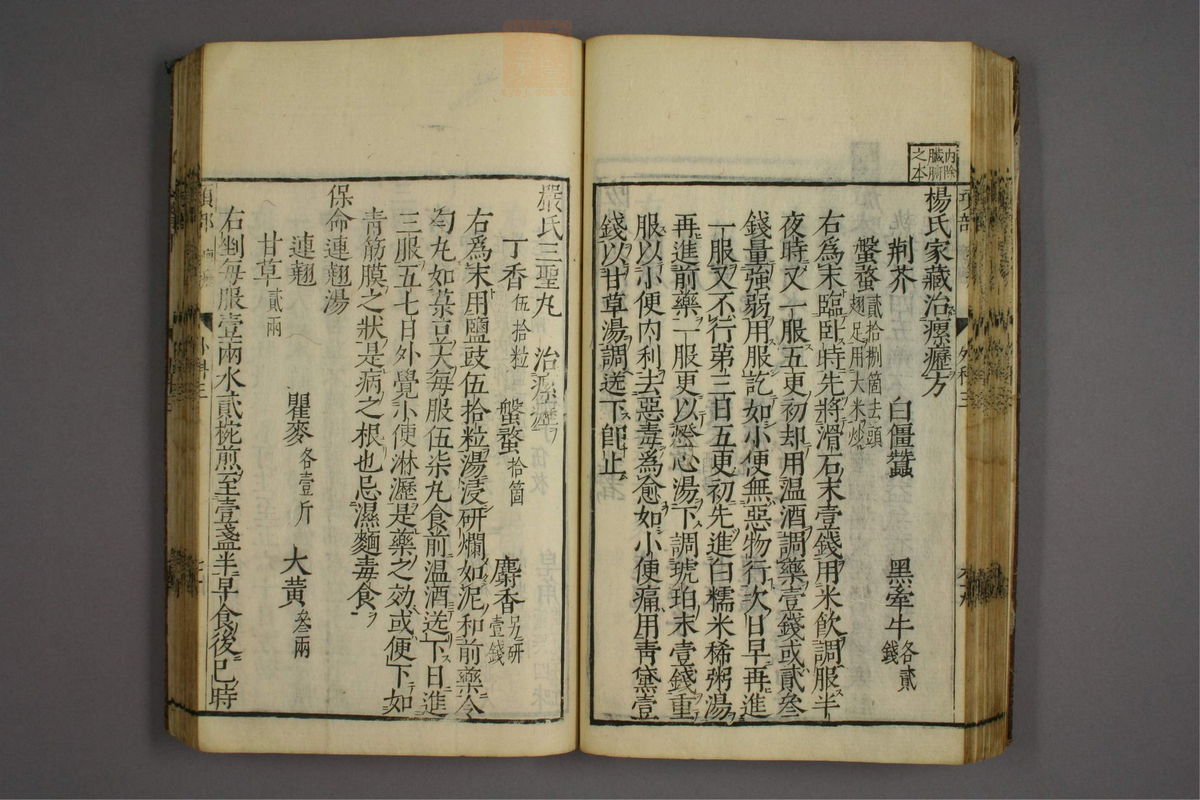 内除
臓腑
之本
楊氏家藏治瘰癧方
荆芥 白僵蠶 黑牽牛各貳錢
盤蝥貳拾捌箇去頭翅足用大米炒
右爲末臨臥時先將滑石末壹錢用米飲調服半
夜時又一服五更初却用温酒調藥壹錢或貳叁
錢量強弱用服訖如小便無惡物行次日早再進
一服又不行第三日五更初先進白糯米稀粥湯
再進前藥一服更以燈心湯下調琥珀末壹錢重
服以小便内利去惡毒爲愈如小便痛用青黛壹
錢以甘草湯調送下即止
嚴氏三聖丸 治瘰癧
丁香伍拾粒 盤蝥拾箇 麝香另研壹錢
右爲末用鹽豉伍拾粒湯浸研爛如泥和前藥令
勻丸如菉豆大每服伍柒丸食前温酒送下日進
三服五七日外覺小便淋瀝是藥之効或便下如
青筋膜之狀是病之根也忌濕麵毒食
保命連翹湯
連翹 瞿麥各壹斤 大黄叁兩
甘草貳兩
右剉每服壹兩水貳椀煎至壹盞半早食後巳時